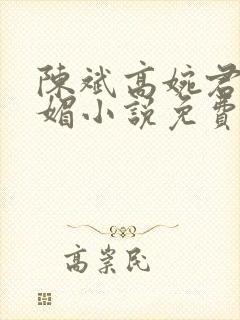 陳斌高婉君
媚小說免費
高崇民